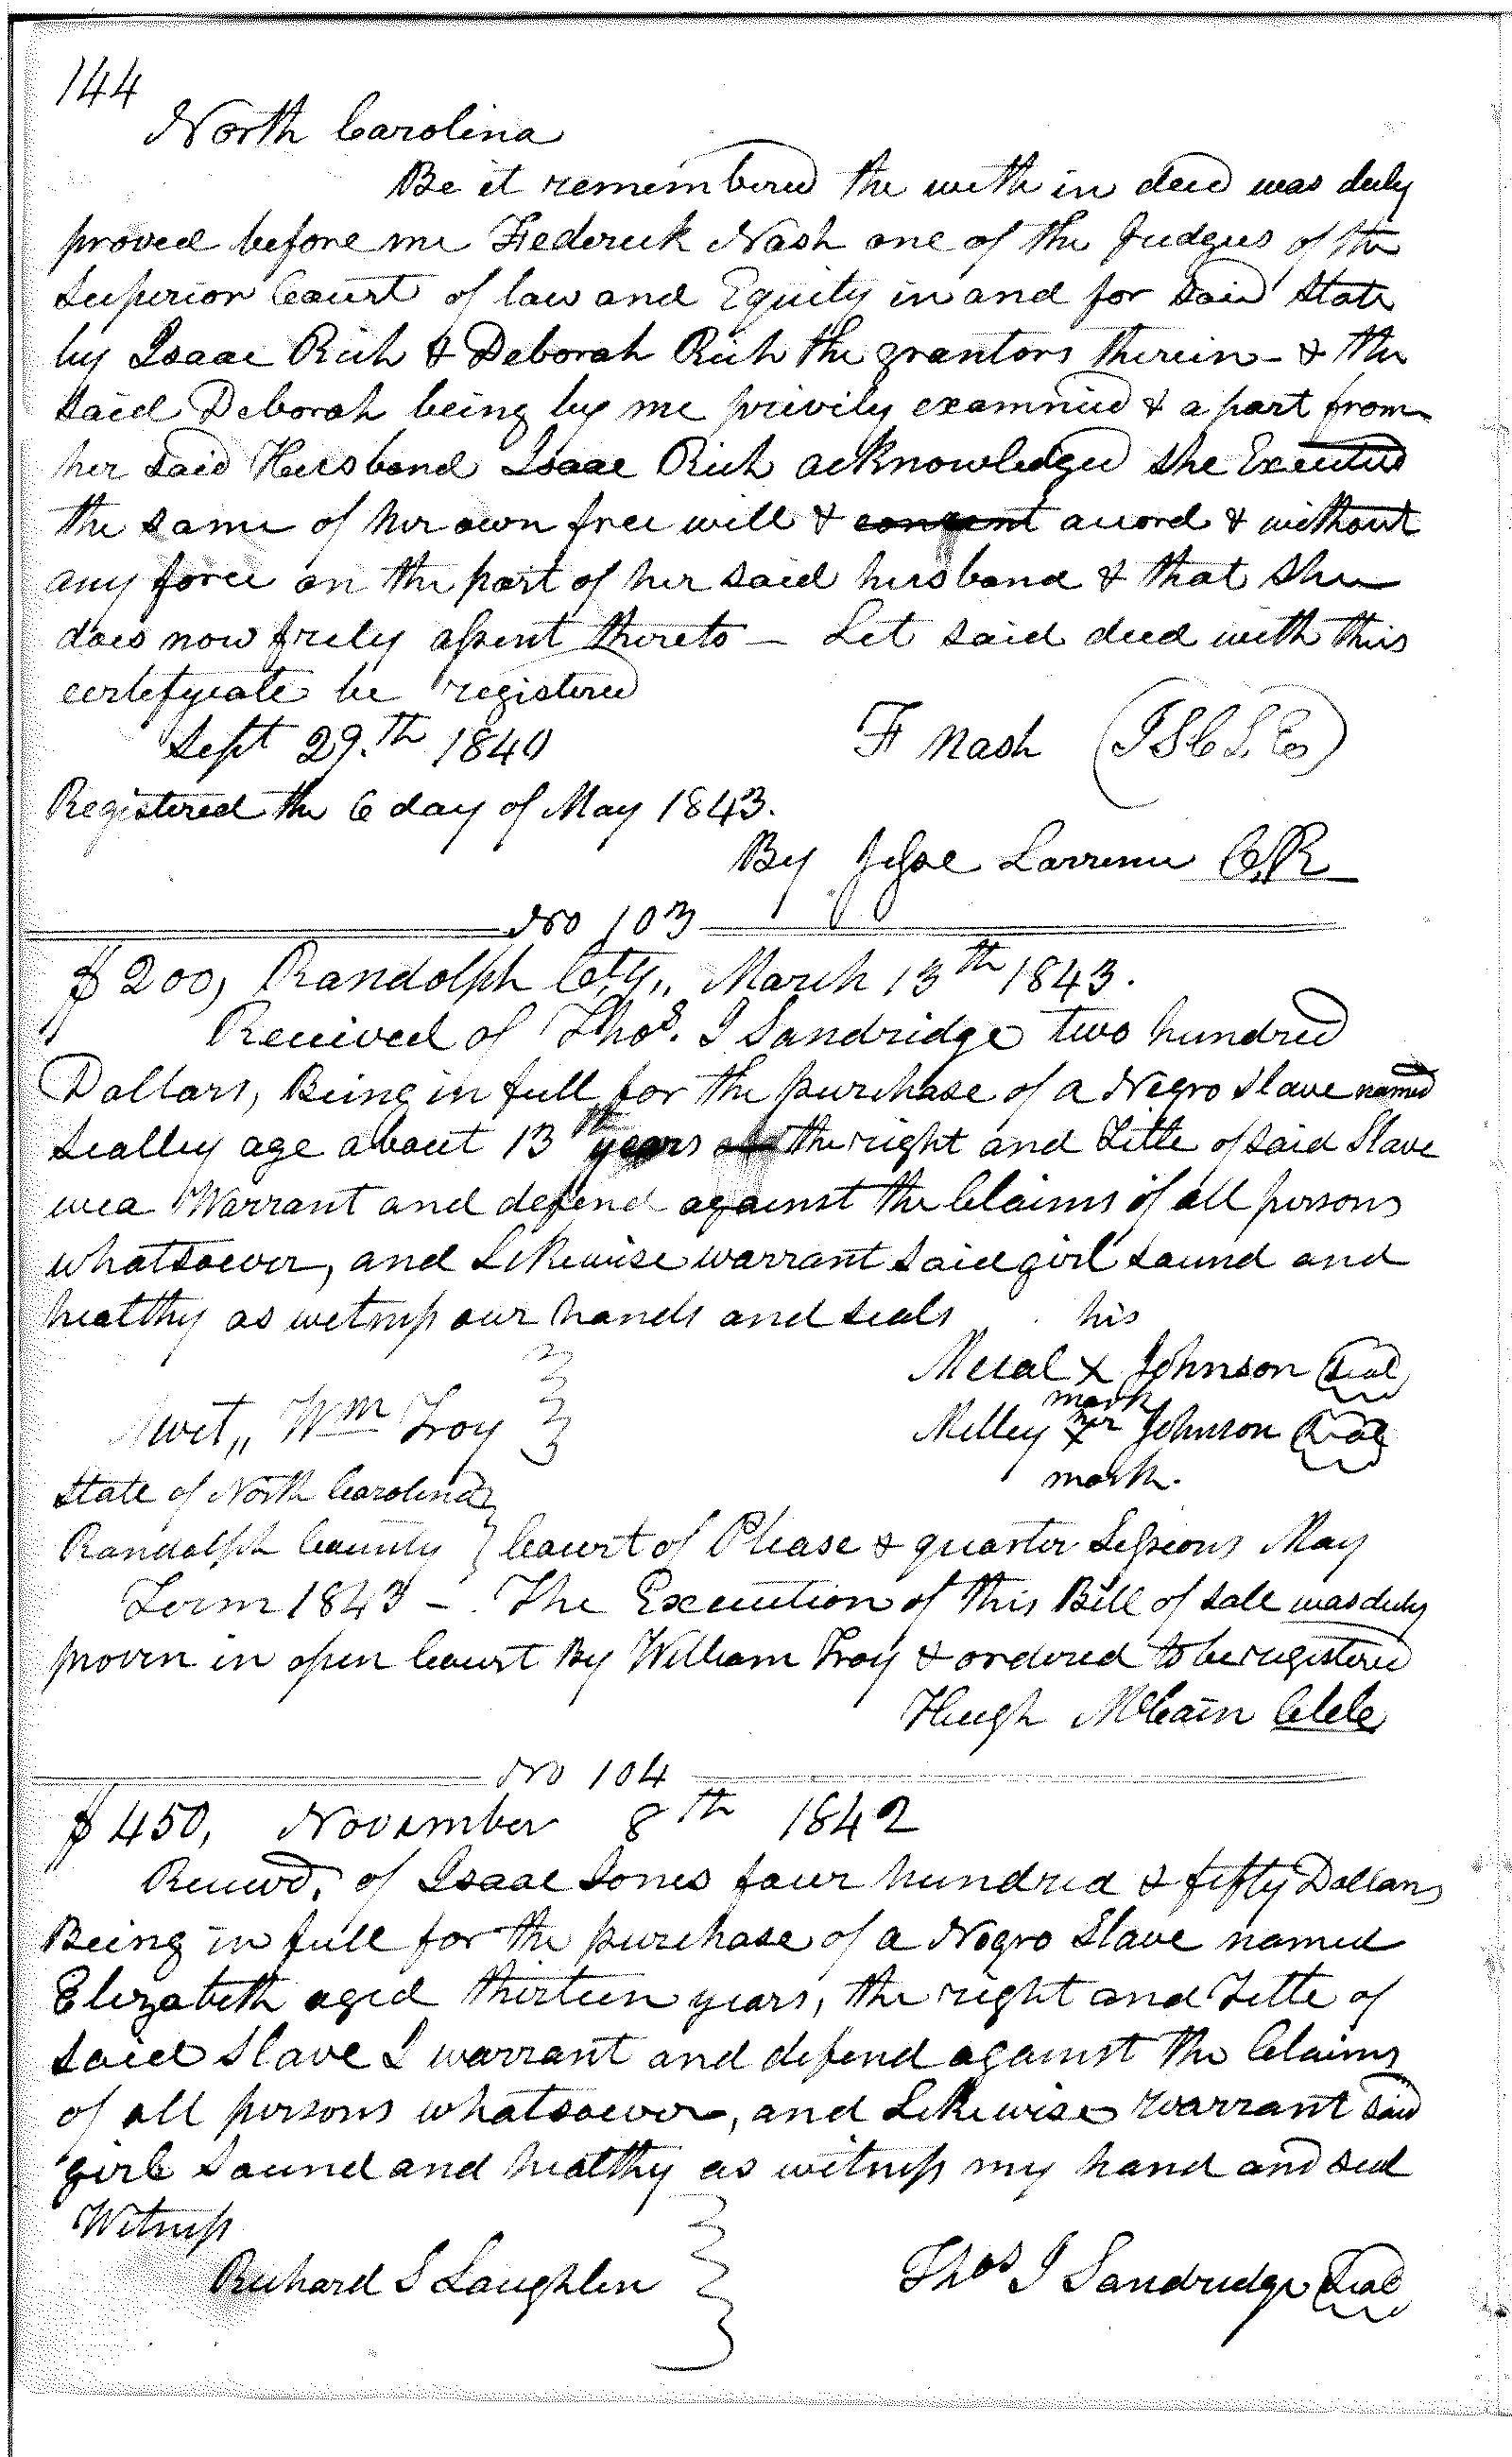 144
North Carolina
Be it remembered the with in deed was duly
proved before me Frederick Nash one of the Judges of the
Superior Court of law and Equity in and for said State
by Isaac Rich & Deborah Rich the grantors therein - & the
said Deborah being by me privily examined & apart from
her said Husband Isaac Rich acknowledged she Executed
the same of her own free will & consent accord & without
any force on the part of her said husband & that she
does now freely assent thereto — Let said deed with this
certifycate be registered
Sept 29.th 1840
F Nash
Registered the 6 day of May 1843.
By Jesse Larrence C,R
No 103
$200, Randolph Cty,, March 13th 1843.
Received of Thos. J Sandridge two hundred
Dollars, Being in full for the purchase of a Negro Slave named
Sealley age about 13 years the right and Title of said Slave
wea Warrant and defend against the Claims of all persons
whatsoever, and Likewise warrant said girl sound and
healthy as witness our hands and seals
his
Mecal X Johnson Seal
mark
Test,, Wm Troy
her
Milley X Johnson Seal
mark.
State of North Carolina
Randolph County } Court of Please & quarter Sessions May
Term 1843 - . The Execution of this Bill of Sale was duly
proven in open Court By William Troy & ordered to be registered
Hugh McCain Clk
No 104
$450, November 8th 1842
Receivd. of Isaac Jones four hundred & fifty Dollars
Being in full for the purchase of a Negro Slave named
Elizabeth aged thirteen years, the right and Title of
said Slave I warrant and defend against the Claims
of all persons whatsoever, and Likewise Warrant said
girl sound and healthy as witness my hand and seal
Witness
Richard S Laughlin
Thos J Sandridge Seal